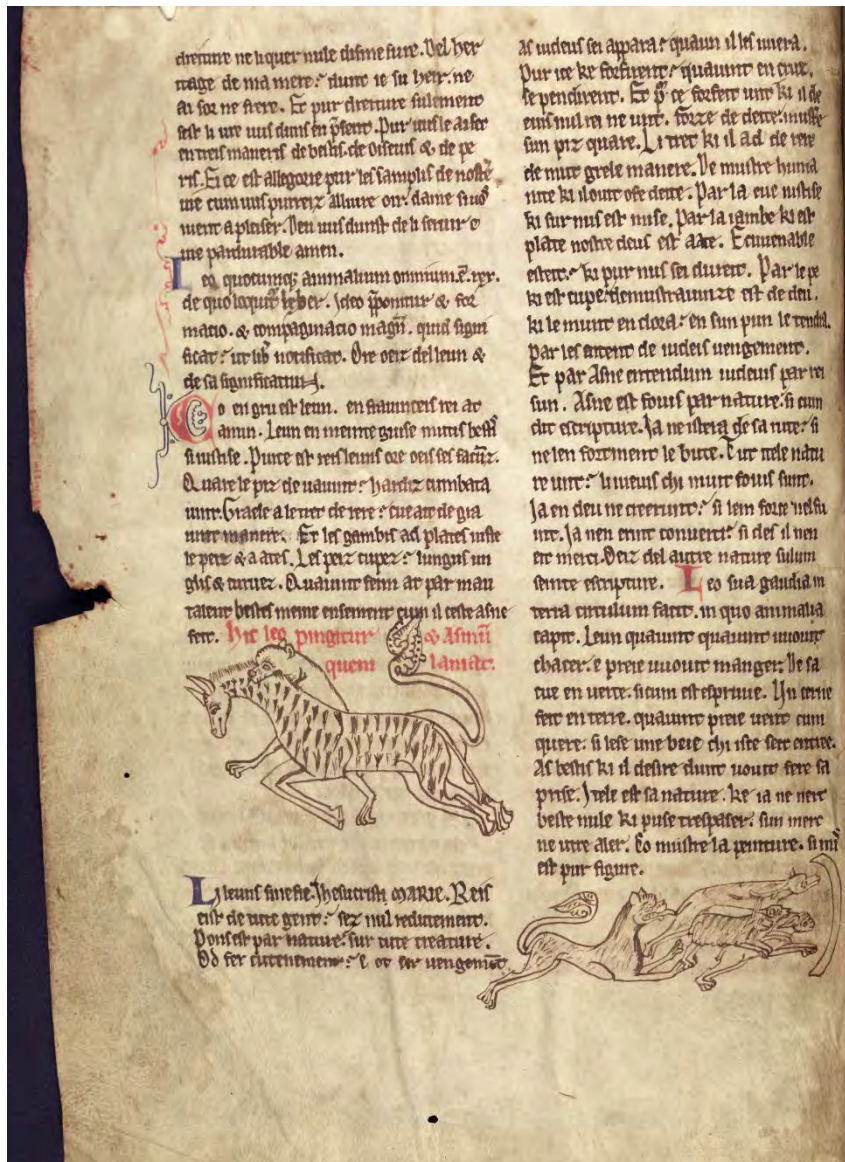 dreiture ne liquer nule disme sure. Del her
itage de ma mere: dunt ie su heir. ne
ai sor ne frere. Et pur dreiture sulement
en treis maneris de bestis. de oiseus & de pe
ris. Ei ce est allegorie pur les samplis de nostre
uie cum uus purreiz
ment a pleiser. Deu uus dunst de li seruir e
uie pardurable amen.
Leo quocumq; animalium omnium. ē. rex.
de quo loquitur liber. Ideo p̄ponitur & for
macio. & compaginacio magn̄. quid signi
ficat: ut lib̄ notificat. Ore oeiz del leun &
de sa significatiun.
Co en gru est leun. en fraunceis rei at
a nun. Leun en meinte guise mutis bestis
si iustise. Purce est reis leuns ore oeis
Quare le piz de uaunt: hardiz cumbata
uunt. Graele a le tret de rere: cue at de gra
unt manere. Et les gambis ad plates iuste
le peiz & aates. Les peiz cupez: lungus un
glis & curuez. Quaunt feim at par mau
talent bestes meine ensement cum il ceste asne
fert. Hic leo pingitur & Asinū
quem laniat.
Li leuns sinefie. Ihesucrist MARIE. Reis
eist de tute gent: sez nul redutement.
Pons est par nature: sur tute creature.
Od fer cuntenement: e ot fer uengemēt
As iudeus sei appara: quaun il les uuera.
Pur ice ke forfirent: quaunt en cruz.
le pendirent. Et p̄ ce forfeit unt ki il de
euis nul rei ne unt. forze de deite: mustre
sun piz quare. Li tret ki il ad de rere
de mut grele manere. De mustre huma
nite ki il out ofe deite: Par la cue iustise
ki sur nus est mise. Par la iambe ki est
plate nostre deus est aate. E cuuenable
esteit: ki pur nus sei dureit. Par le pe
ki est cupe: demustraunze est de deu.
ki le munt en clora: en sun pun le tendra.
Par les uengement.
Et par Asne entendum iudeuis par rei
sun. Asne est fouis par nature: si cum
dit escripture. Ja ne istera de sa rute: si
ne len forment le bute. Tut itele natu
re unt: li iueuis chi mut fouis sunt.
Ja en deu ne creerunt: si lem forte nel fu
unt. Ja nen erint conuerti: si des il nen
eit merci. Oeiz del autre nature sulum
seinte escripture. Leo sua gaudia in
terra circulum facit. in quo animalia
capit. Leun quaunt quaunt uuout
chacer. e preie uuout manger: De sa
cue en uerte. si cum est espruue. Un cerne
feit en terre. quaunt preie ueut cum
quere: si lese une beie chi iste seit entree.
As bestis ki il desire dunt uout fere sa
prise. Itele est sa nature. ke ia ne nert
beste nule ki puse trespaser: sun merc
ne utre aler. Eo mustre la peinture. si
est pur figure.